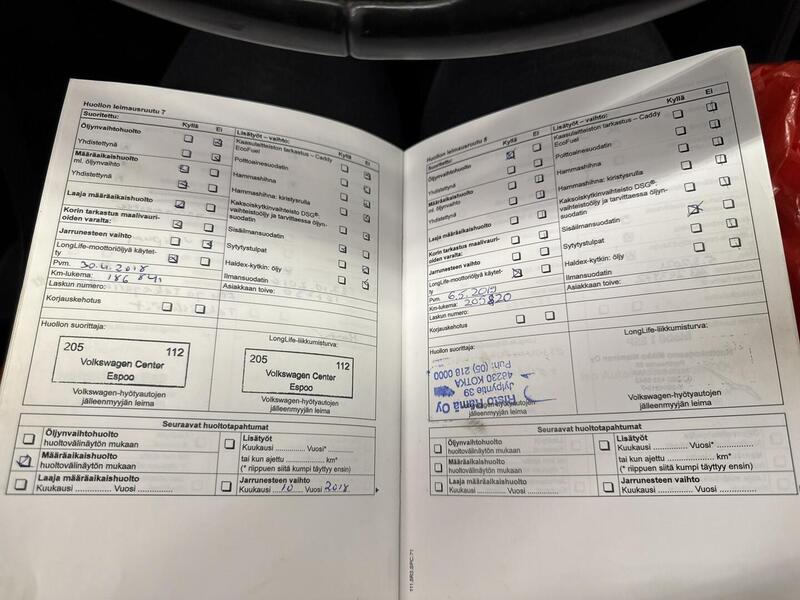 Huollon leimausruutu 7
Suoritettu: Kyllä Ei
Öljynvaihtohuolto
Yhdistettynä
Määräaikaishuolto
ml. öljynvaihto
Yhdistettynä
Laaja määräaikaishuolto
Korin tarkastus maalivauri-
oiden varalta:
Jarrunesteen vaihto
LongLife-moottoriöljyä käytet-
ty
Pvm. 30.4.2018
Km-lukema: 186 841
Laskun numero:
Korjauskehotus
Lisätyöt – vaihto: Kyllä Ei
Kaasulaitteiston tarkastus – Caddy
EcoFuel
Polttoainesuodatin
Hammashihna
Hammashihna: kiristysrulla
Kaksoiskytkinvaihteisto DSG®:
vaihteistoöljy ja tarvittaessa öljyn-
suodatin
Sisäilmansuodatin
Sytytystulpat
Haldex-kytkin: öljy
Ilmansuodatin
Asiakkaan toive:
Huollon suorittaja:
205 112
Volkswagen Center
Espoo
Volkswagen-hyötyautojen
jälleenmyyjän leima
LongLife-liikkumisturva:
205 112
Volkswagen Center
Espoo
Volkswagen-hyötyautojen
jälleenmyyjän leima
Seuraavat huoltotapahtumat
Öljynvaihtohuolto
huoltovälinäytön mukaan
Määräaikaishuolto
huoltovälinäytön mukaan
Laaja määräaikaishuolto
Kuukausi ............ Vuosi ............
Lisätyöt
Kuukausi ............ Vuosi* ............
tai kun ajettu ............ km*
(* riippuen siitä kumpi täyttyy ensin)
Jarrunesteen vaihto
Kuukausi 10 Vuosi 2018
Huollon leimausruutu 8
Suoritettu: Kyllä Ei
Öljynvaihtohuolto
Yhdistettynä
Määräaikaishuolto
ml. öljynvaihto
Yhdistettynä
Laaja määräaikaishuolto
Korin tarkastus maalivauri-
oiden varalta:
Jarrunesteen vaihto
LongLife-moottoriöljyä käytet-
ty
Pvm. 6.5.2019
Km-lukema: 205820
Laskun numero:
Korjauskehotus
Lisätyöt – vaihto: Kyllä Ei
Kaasulaitteiston tarkastus – Caddy
EcoFuel
Polttoainesuodatin
Hammashihna
Hammashihna: kiristysrulla
Kaksoiskytkinvaihteisto DSG®:
vaihteistoöljy ja tarvittaessa öljyn-
suodatin
Sisäilmansuodatin
Sytytystulpat
Haldex-kytkin: öljy
Ilmansuodatin
Asiakkaan toive:
Huollon suorittaja:
Risto Rämä Oy
Jylpyntie 39
48230 KOTKA
Puh: (05) 218 0000
Volkswagen-hyötyautojen
jälleenmyyjän leima
LongLife-liikkumisturva:
Volkswagen-hyötyautojen
jälleenmyyjän leima
Seuraavat huoltotapahtumat
Öljynvaihtohuolto
huoltovälinäytön mukaan
Määräaikaishuolto
huoltovälinäytön mukaan
Laaja määräaikaishuolto
Kuukausi ............ Vuosi ............
Lisätyöt
Kuukausi ............ Vuosi* ............
tai kun ajettu ............ km*
(* riippuen siitä kumpi täyttyy ensin)
Jarrunesteen vaihto
Kuukausi ............ Vuosi ............